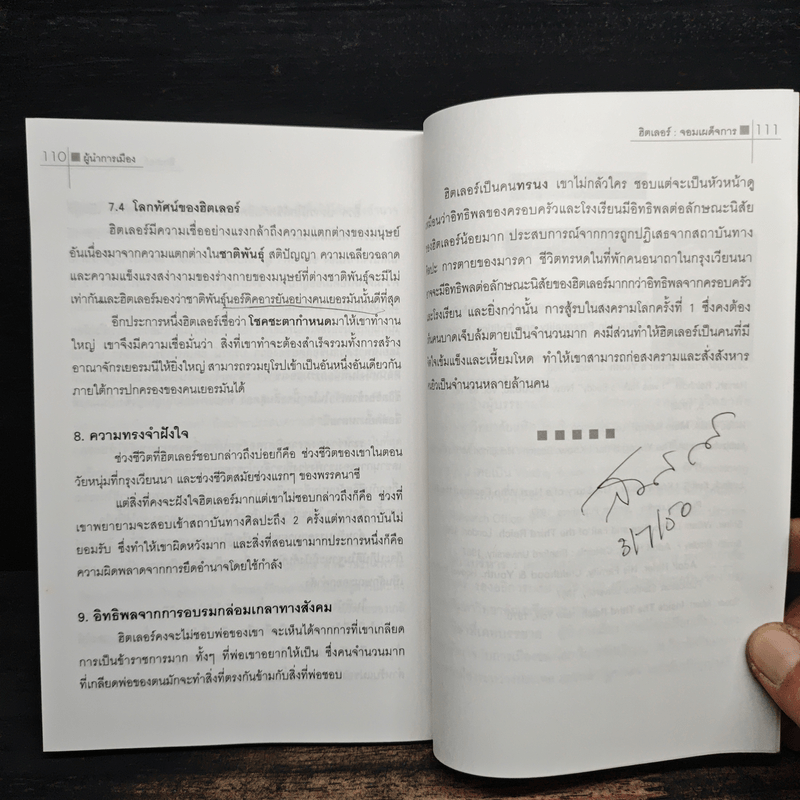 110 ผู้นำการเมือง
7.4 โลกทัศน์ของฮิตเลอร์
ฮิตเลอร์มีความเชื่ออย่างแรงกล้าถึงความแตกต่างของมนุษย์
อันเนื่องมาจากความแตกต่างในชาติพันธุ์ สติปัญญา ความเฉลียวฉลาด
และความแข็งแรงสง่างามของร่างกายของมนุษย์ที่ต่างชาติพันธุ์จะมีไม่
เท่ากันและฮิตเลอร์มองว่าชาติพันธุ์นอร์ดิคอารยันอย่างคนเยอรมันนั้นดีที่สุด
อีกประการหนึ่งฮิตเลอร์เชื่อว่าโชคชะตากำหนดมาให้เขาทำงาน
ใหญ่ เขาจึงมีความเชื่อมั่นว่า สิ่งที่เขาทำจะต้องสำเร็จรวมทั้งการสร้าง
อาณาจักรเยอรมนีให้ยิ่งใหญ่ สามารถรวมยุโรปเข้าเป็นอันหนึ่งอันเดียวกัน
ภายใต้การปกครองของคนเยอรมันได้
8. ความทรงจำฝังใจ
ช่วงชีวิตที่ฮิตเลอร์ชอบกล่าวถึงบ่อยก็คือ ช่วงชีวิตของเขาในตอน
วัยหนุ่มที่กรุงเวียนนา และช่วงชีวิตสมัยช่วงแรกๆ ของพรรคนาซี
แต่สิ่งที่คงจะฝังใจฮิตเลอร์มากแต่เขาไม่ชอบกล่าวถึงก็คือ ช่วงที่
เขาพยายามจะสอบเข้าสถาบันทางศิลปะถึง 2 ครั้งแต่ทางสถาบันไม่
ยอมรับ ซึ่งทำให้เขาผิดหวังมาก และสิ่งที่สอนเขามากประการหนึ่งก็คือ
ความผิดพลาดจากการยึดอำนาจโดยใช้กำลัง
9. อิทธิพลจากการอบรมกล่อมเกลาทางสังคม
ฮิตเลอร์คงจะไม่ชอบพ่อของเขา จะเห็นได้จากการที่เขาเกลียด
การเป็นข้าราชการมาก ทั้งๆ ที่พ่อเขาอยากให้เป็น ซึ่งคนจำนวนมาก
ที่เกลียดพ่อของตนมักจะทำสิ่งที่ตรงกันข้ามกับสิ่งที่พ่อชอบ
ฮิตเลอร์ : จอมเผด็จการ 111
ฮิตเลอร์เป็นคนทรนง เขาไม่กลัวใคร ชอบแต่จะเป็นหัวหน้าดู
เหมือนว่าอิทธิพลของครอบครัวและโรงเรียนมีอิทธิพลต่อลักษณะนิสัย
ของฮิตเลอร์น้อยมาก ประสบการณ์จากการถูกปฏิเสธจากสถาบันทาง
ศิลปะ การตายของมารดา ชีวิตทรหดในที่พักคนอนาถาในกรุงเวียนนา
จะมีอิทธิพลต่อลักษณะนิสัยของฮิตเลอร์มากกว่าอิทธิพลจากครอบครัว
และโรงเรียน และยิ่งกว่านั้น การสู้รบในสงครามโลกครั้งที่ 1 ซึ่งคงต้อง
คนบาดเจ็บล้มตายเป็นจำนวนมาก คงมีส่วนทำให้ฮิตเลอร์เป็นคนที่มี
จิตใจเข้มแข็งและเหี้ยมโหด ทำให้เขาสามารถก่อสงครามและสั่งสังหาร
คนเป็นจำนวนหลายล้านคน
3/7/50